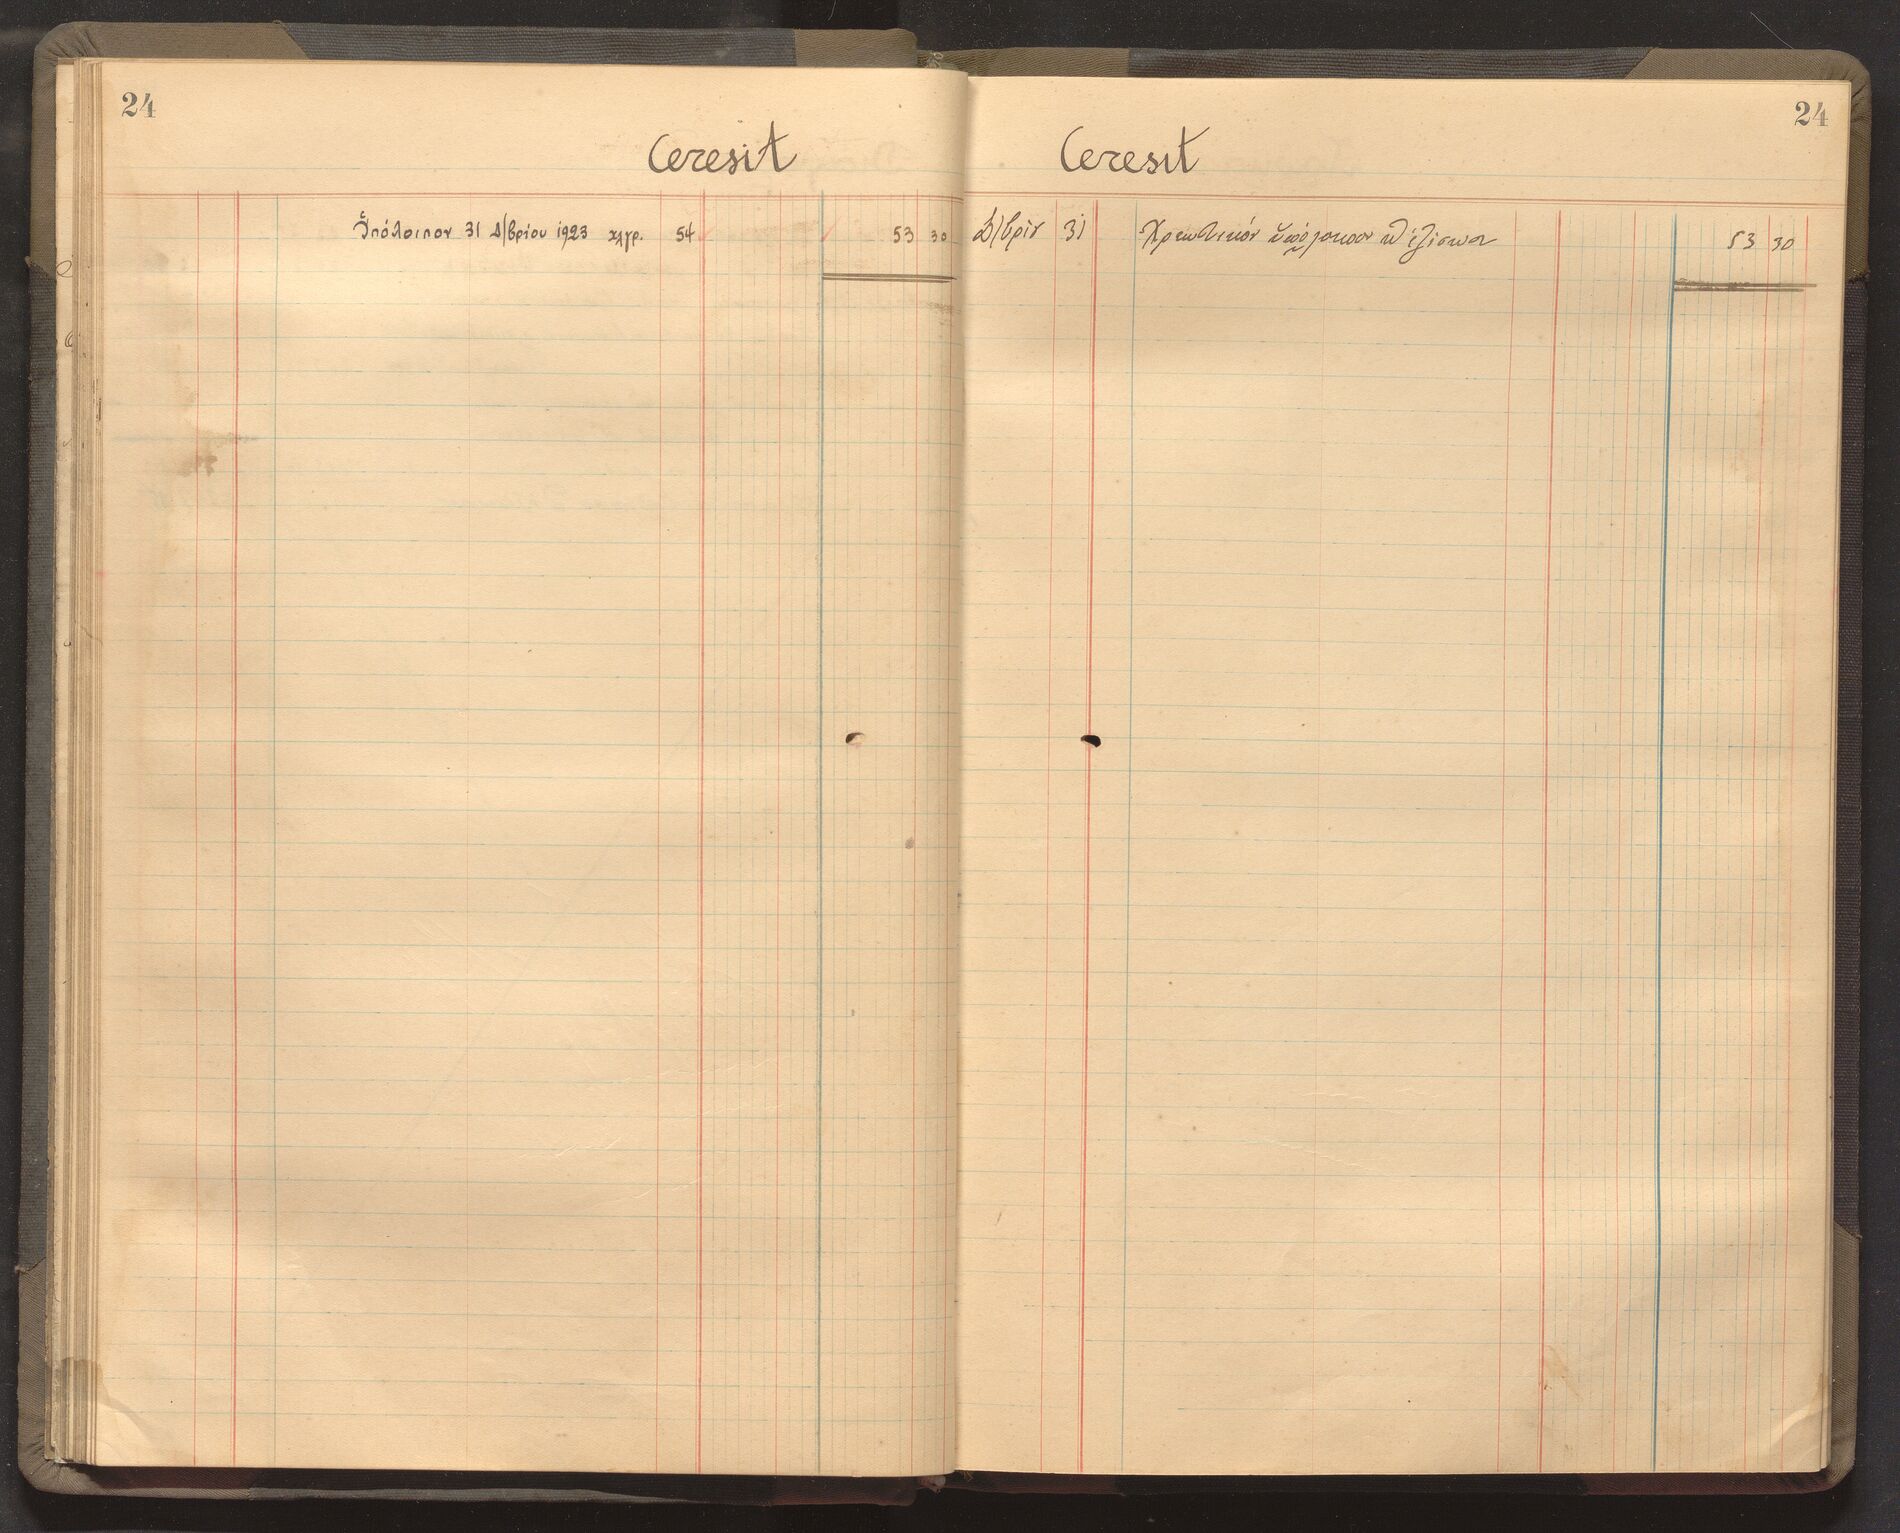 24
Ceresit
Ὑπόλοιπον 31 Δ/βρίου 1923 χλγρ. 54 53 30
24
Ceresit
Δ/βρίου 31 Χρεωστικόν ὑπόλοιπον 53 30